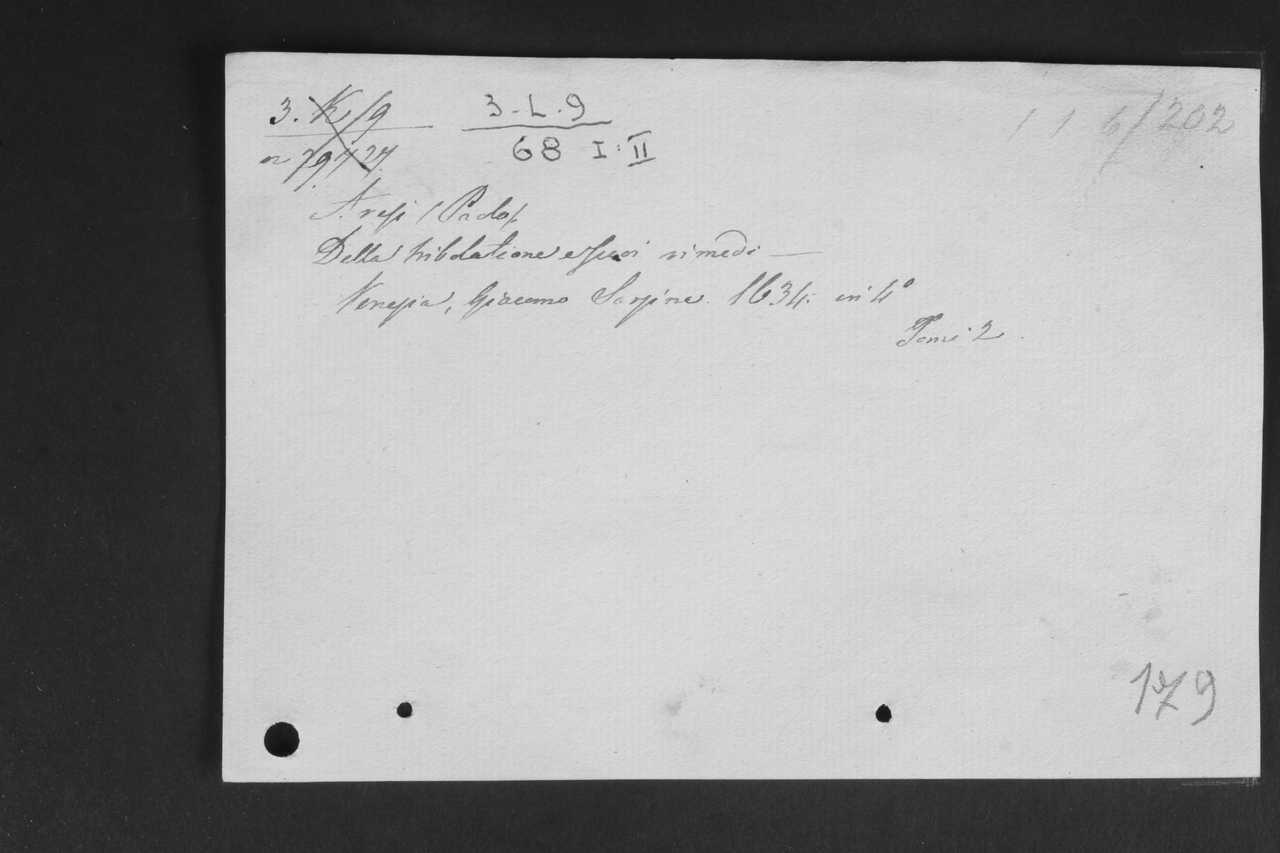 3. K/9
3-L.9
116/202
68 I:II
Aresi (Paolo)
Della tribolatione e suoi rimedi —
Venezia, Giacomo Sarzina. 1634. in 4º
Tomi 2.
179